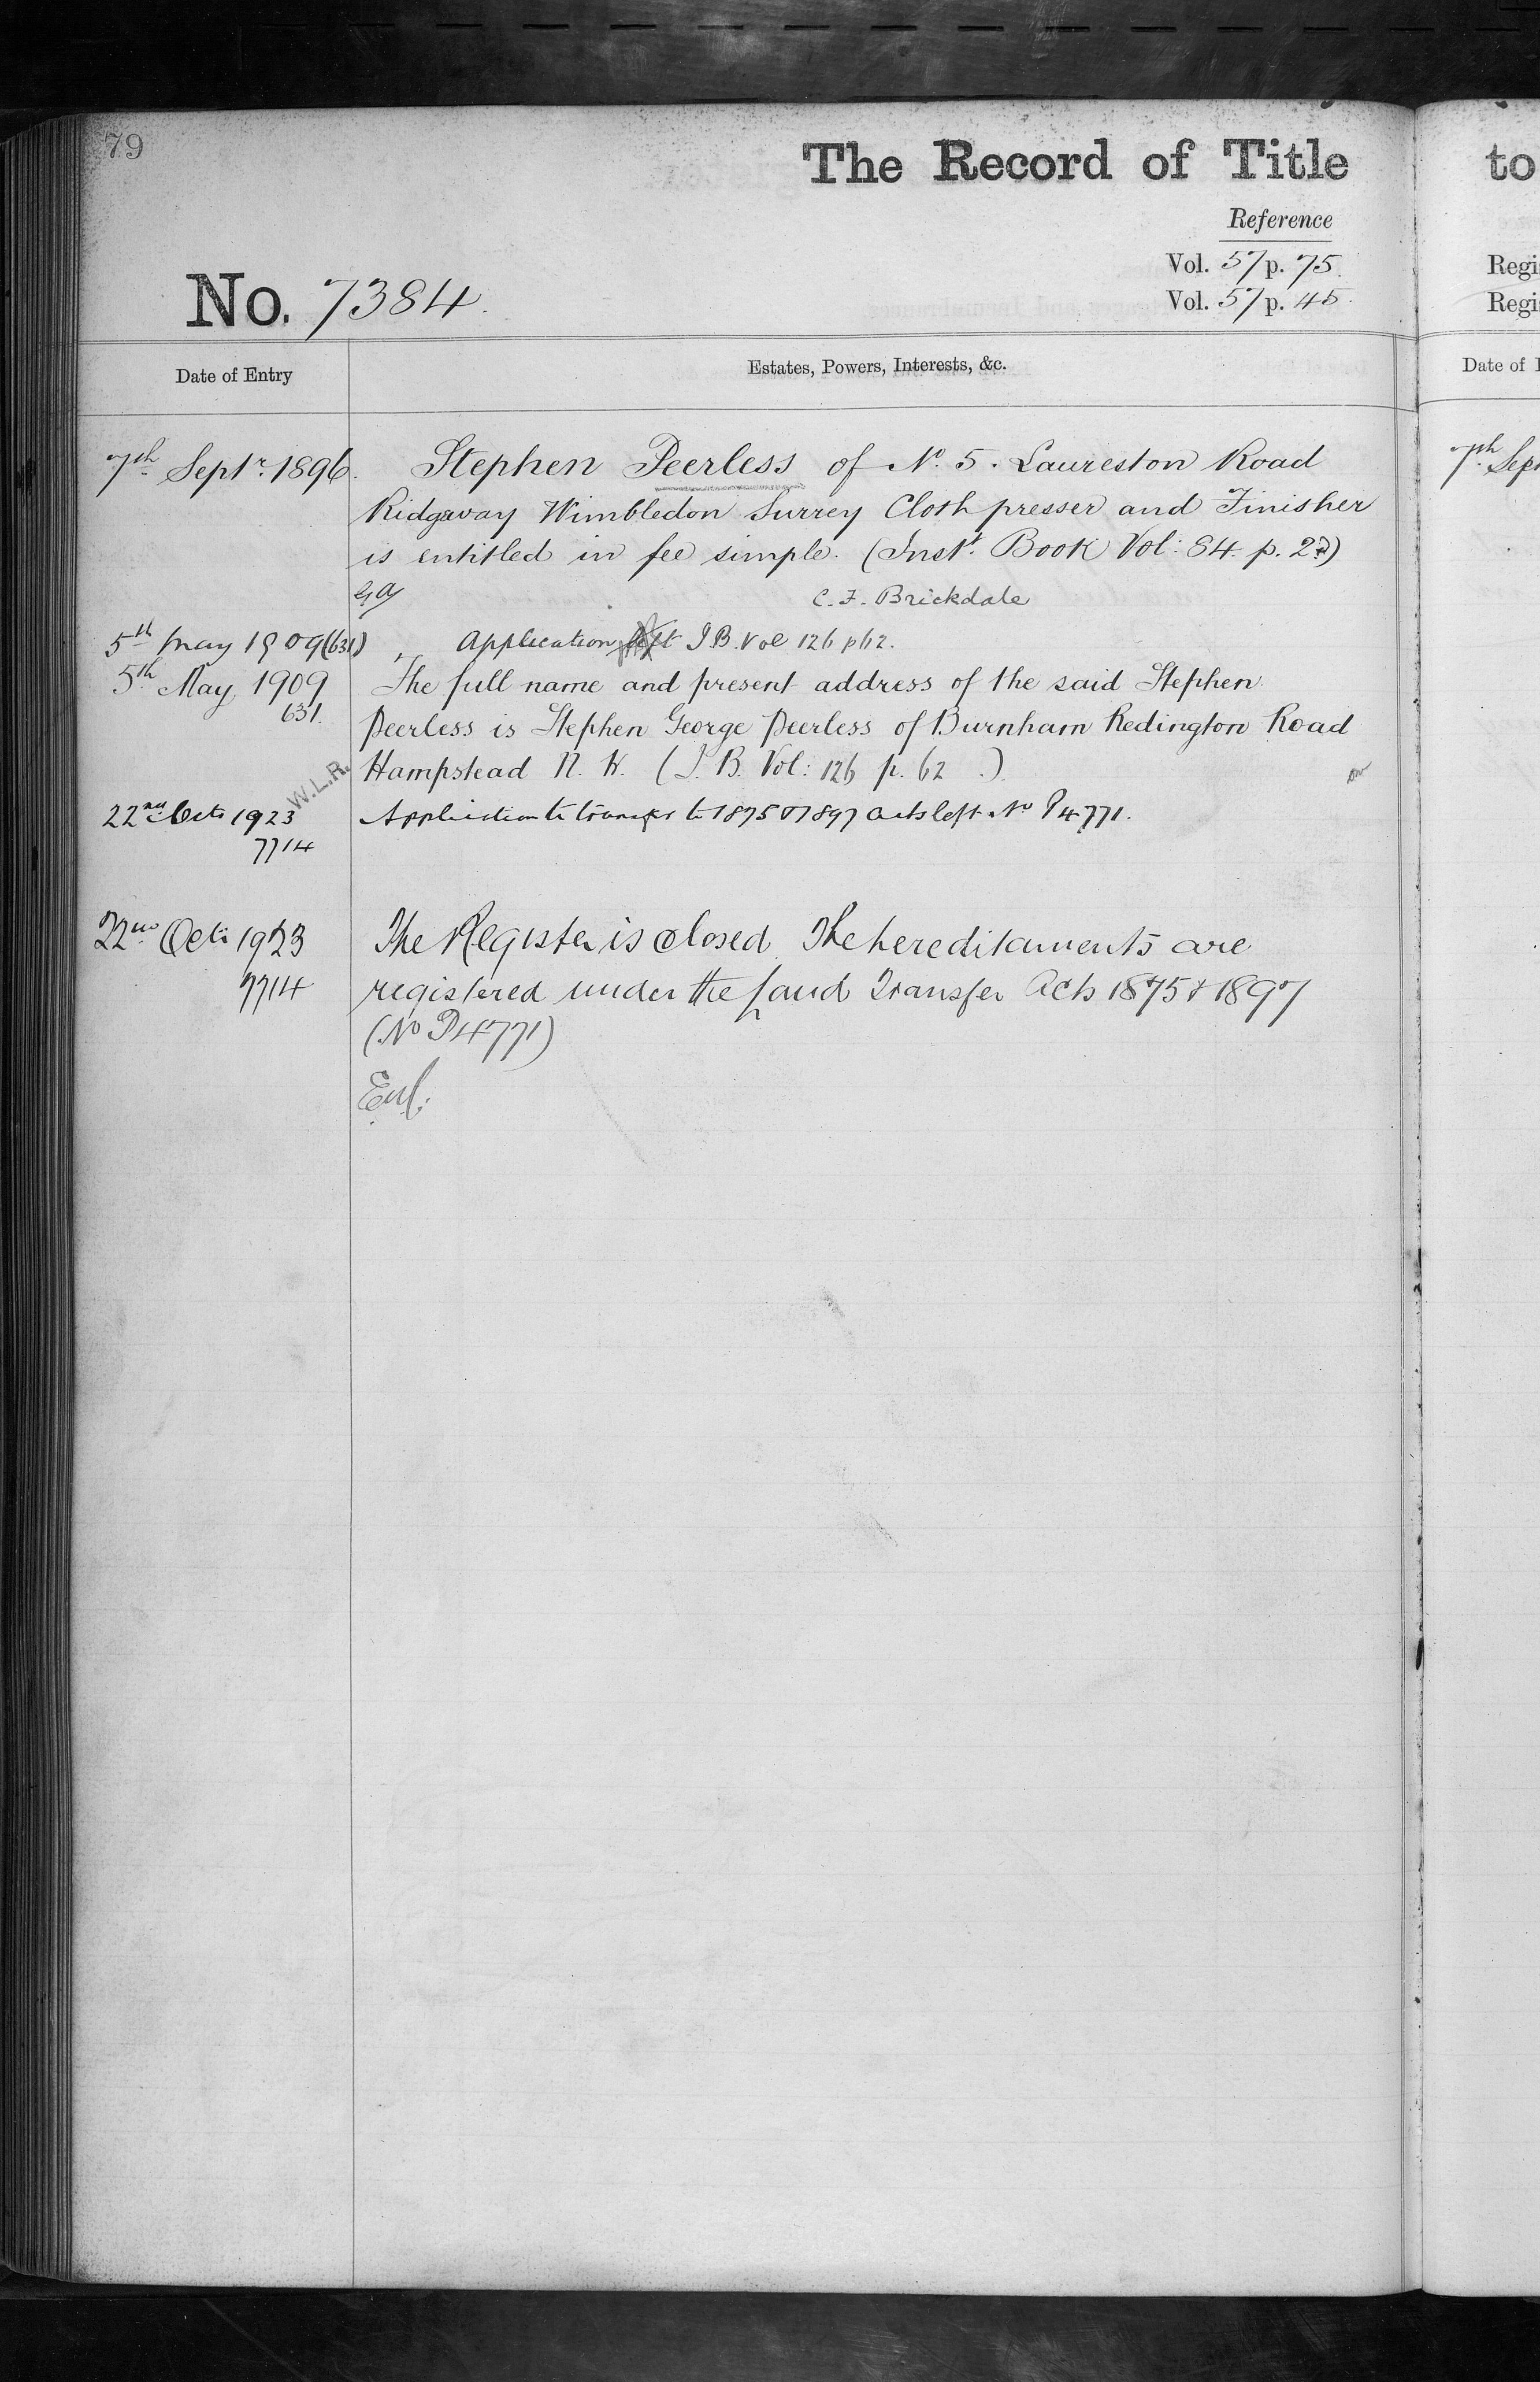 79
The Record of Title
Reference
Vol. 57 p. 75.
No. 7384.
Vol. 57 p. 45.
Date of Entry
Estates, Powers, Interests, &c.
7th Septr. 1896.
Stephen Peerless of No. 5. Laureston Road
Ridgway Wimbledon Surrey Cloth presser and Finisher
is entitled in fee simple. (Inst. Book Vol: 84. p. 27)
C. F. Brickdale
5th May 1909 (631)
Application left I B. Vol 126 p 62.
5th May, 1909
631.
The full name and present address of the said Stephen
Peerless is Stephen George Peerless of Burnham Redington Road
Hampstead N. W. (I. B. Vol: 126 p. 62 .)
W.L.R.
22nd Octr 1923
7714
Application to transfer to 1875 & 1897 Acts left No P4771.
22nd Octr 1923
7714
The Register is closed. The hereditaments are
registered under the Land Transfer Acts 1875 & 1897
(No P4771)
to
Regi
Regi
Date of
7th Sep